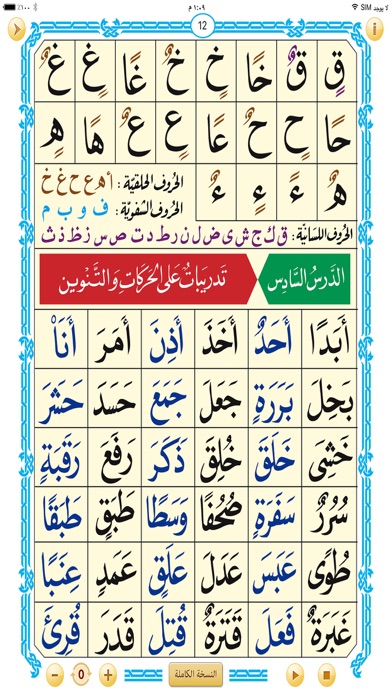 لا يوجد SIM ١:٠٩ م ٪١٠٠
12
قٍ قٌ خًا خٍ خٌ غًا غٍ غٌ
حًا حٍ حٌ عًا عٍ عٌ هًا هٍ
هٌ ءً ءٍ ءٌ
الحُرُوفُ الحَلْقِيَّة : أ هـ ع ح غ خ
الحُرُوفُ الشَّفَوِيَّة : ف و ب م
الحُرُوفُ اللِّسَانِيَّة : ق ك ج ش ي ض ل ن ر ط د ت ص س ز ظ ذ ث
الدَّرْسُ السَّادِس تَدْرِيبَاتٌ عَلَى الحَرَكَاتِ وَالتَّنْوِين
أَبَدًا أَحَدٌ أَخَذَ أَذِنَ أَمَرَ أَنَاْ
بَخِلَ بَرَرَةٍ جَعَلَ جَمَعَ حَسَدَ حَشَرَ
خَشِيَ خَلَقَ خُلِقَ ذَكَرَ رَفَعَ رَقَبَةٍ
سُرُرٌ سَفَرَةٍ صُحُفًا وَسَطًا طَبَقٍ طَبَقًا
طُوًى عَبَسَ عَدَلَ عَلَقٍ عَمَدٍ عِنَبًا
غَبَرَةٌ فَعَلَ قَتَرَةٌ قُتِلَ قَدَرَ قُرِئَ
0
النسخة الكاملة